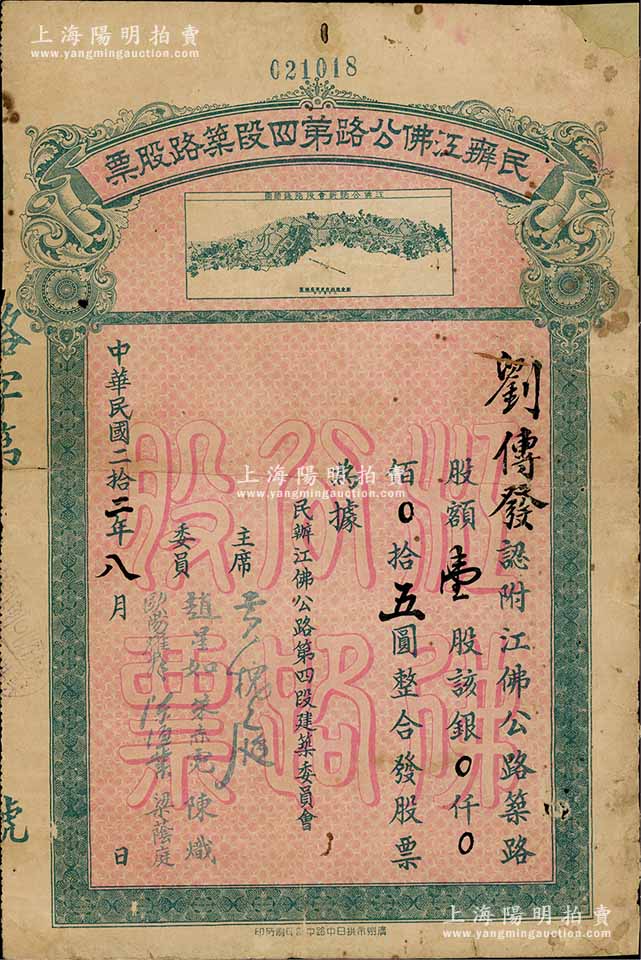 上海陽明拍賣
www.yangmingauction.com
021018
民辦江佛公路第四段築路股票
劉傳發認附江佛公路築路
股額壹股該銀0仟0
佰0拾五圓整合發股票
為據
民辦江佛公路第四段建築委員會
主席
委員 趙星如 陳熾
梁蔭庭
中華民國二拾二年八月 日
江佛公路股票
路字第
號
上海陽明拍賣
www.yangmingauction.com
上海陽明拍賣
www.yangmingauction.com